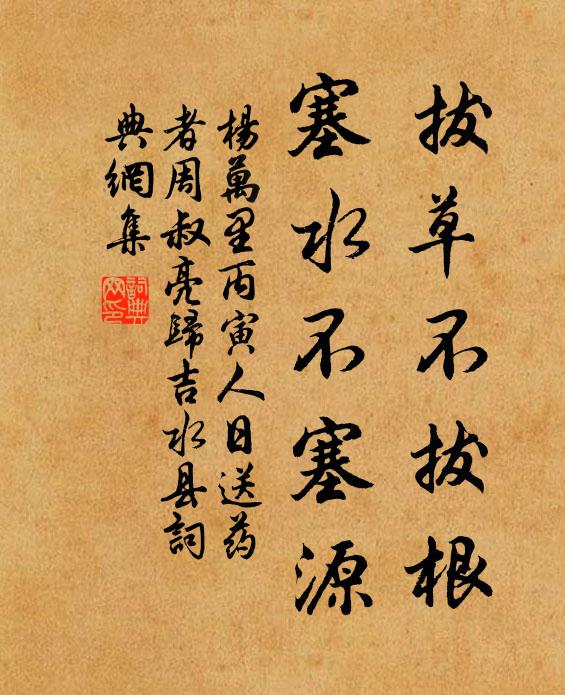 拔草不拔根
塞水不塞源
楊萬里丙寅人日送药
者周叔亮歸吉水县詞
典網集
詞典网印